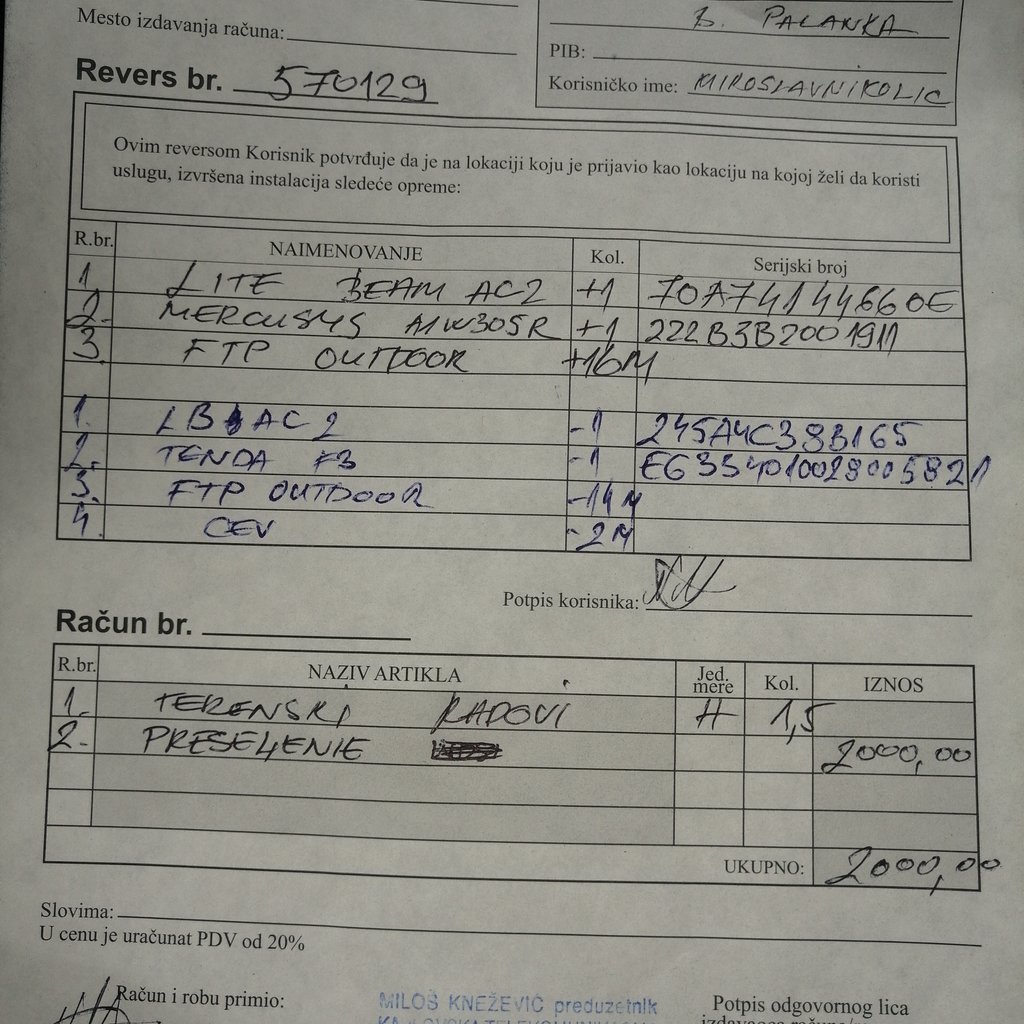 B. PALANKA
Mesto izdavanja računa:
PIB:
Revers br. 570129
Korisničko ime: MIROSLAVNIKOLIC
Ovim reversom Korisnik potvrđuje da je na lokaciji koju je prijavio kao lokaciju na kojoj želi da koristi
uslugu, izvršena instalacija sledeće opreme:
R.br. NAIMENOVANJE Kol. Serijski broj
1. LITE BEAM AC2 +1 70A74144660E
2. MERCUSYS A1W305R +1 222B3B2001911
3. FTP OUTDOOR +16M
1. LB AC2 -1 245A4C38B165
2. TENDA F3 -1 E6334010028005821
3. FTP OUTDOOR -14M
4. CEV -2M
Potpis korisnika:
Račun br.
R.br. NAZIV ARTIKLA Jed. mere Kol. IZNOS
1. TERENSKI RADOVI H 1,5
2. PRESELJENIE 2000,00
UKUPNO: 2000,00
Slovima:
U cenu je uračunat PDV od 20%
Račun i robu primio: MILOŠ KNEŽEVIĆ preduzetnik Potpis odgovornog lica